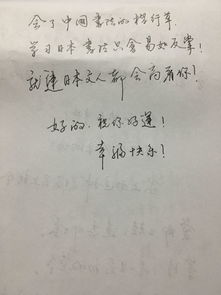 会了中国书法的楷行草，
学习日本书法只会易如反掌！
就连日本文人都会高看你！
好的，祝你好运！
幸福快乐！